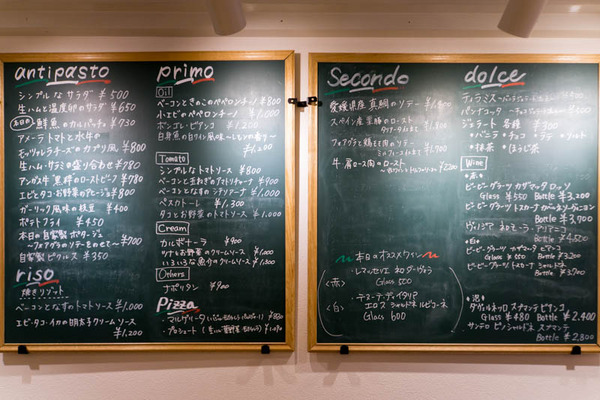 antipasto
シンプルなサラダ ¥500
生ハムと温度卵のサラダ ¥650
鮮魚のカルパッチョ ¥730
アメーラトマトと水牛の
モッツァレラチーズのカプリ風 ¥800
生ハム・サラミの盛り合わせ ¥780
アンガス牛 黒粋のローストビーフ ¥780
エビとタコ・お野菜のアヒージョ ¥800
ガーリック風味の枝豆 ¥400
ポテトフライ ¥450
本日の自家製ポタージュ
～フォアグラのソテーをのせて～ ¥700
自家製ピクルス ¥350
riso
焼きリゾット
ベーコンとなすのトマトソース ¥1,000
エビ・タコ・イカの明太子クリームソース
¥1,200
primo
Oil
ベーコンときのこのペペロンチーノ ¥800
小エビのペペロンチーノ ¥1,000
ボンゴレ・ビアンコ ¥1,200
白身魚の白ワイン風味～レモンの香り～
¥1,200
Tomato
シンプルなトマトソース ¥800
ベーコンと玉ねぎのアマトリチャーナ ¥900
ベーコンとなすのシチリアーナ ¥1,000
ペスカトーレ ¥1,300
タコとお野菜のトマトソース ¥1,000
Cream
カルボナーラ ¥900
ツナとお野菜のクリームソース ¥1,000
いろいろな魚介のクリームソース ¥1,300
Others
ナポリタン ¥900
Pizza
・マルゲリータ
・プロシュート
Secondo
愛媛県産 真鯛のソテー
スペイン産 豚肩のロースト
フォアグラと鶏モモ肉のソテー
牛肩ロース肉のロースト
本日のオススメワイン
(赤)
Glass 500
(白) テヌーテ・ディタリア
Glass 600
dolce
ティラミス
パンナコッタ
ジェラート各種 ¥300
・バニラ ・チョコ ・ラテ ・ソルト
・抹茶 ・ほうじ茶
Wine
・赤・
ビービーグラーツ カザマッタ ロッソ
Glass ¥550 Bottle ¥3,200
ビービーグラーツ トスカーナ カベルネソーヴィニヨン
Bottle ¥3,700
Bottle ¥4,500
・白
ビービーグラーツ カザマッタ ビアンコ
Glass ¥550 Bottle ¥3,200
ビービーグラーツ トスカーナ シャルドネ
Bottle ¥3,700
・泡・
スプマンテ ビアンコ
Glass ¥480 Bottle ¥2,400
サンテロ ピノシャルドネ スプマンテ
Bottle ¥2,800